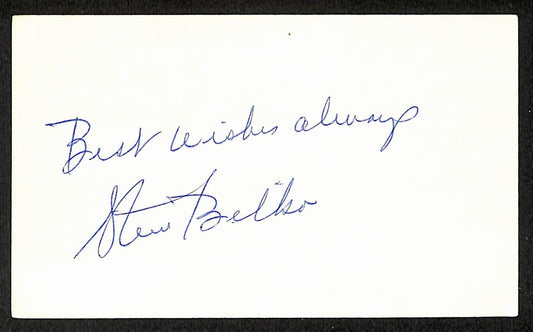 Best wishes always
Steve Belko